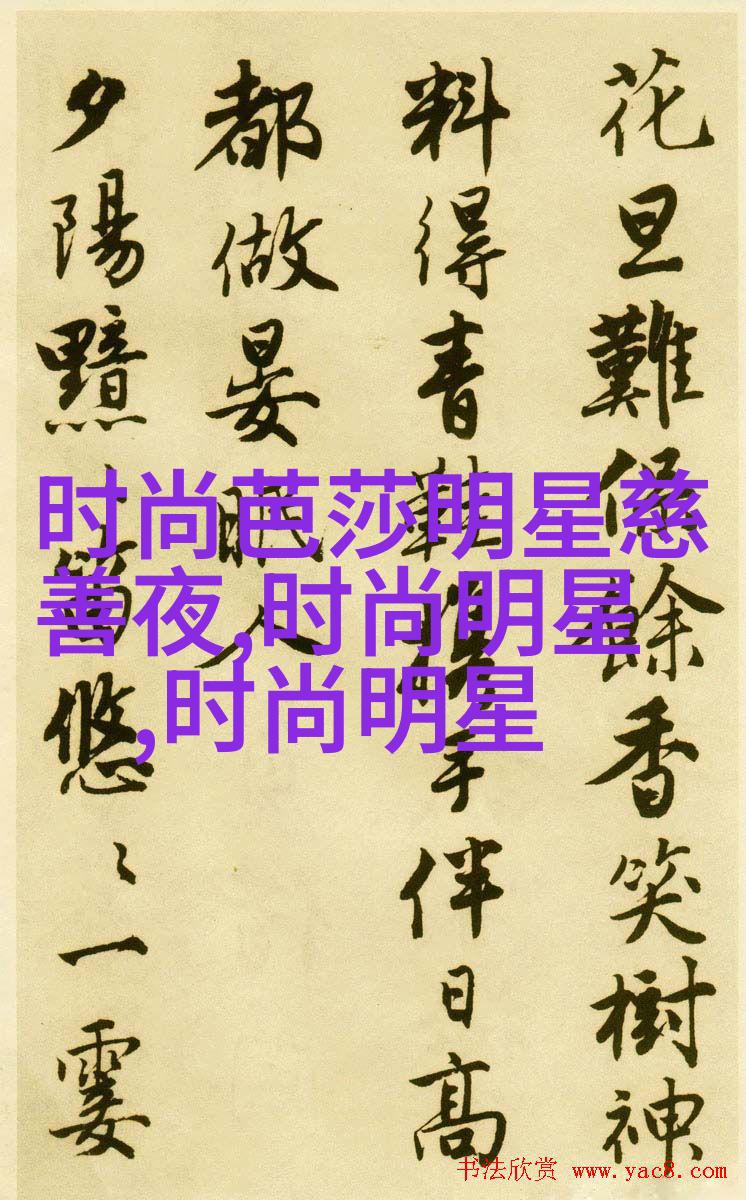 花旦難保餘香笑樹神
料得青鞋攜手伴日高
都做晏眠人
夕陽黯〻笛悠〻一霎
时尚芭莎明星慈
善夜,时尚明星
,时尚明星
书法欣赏 www.yac8.com